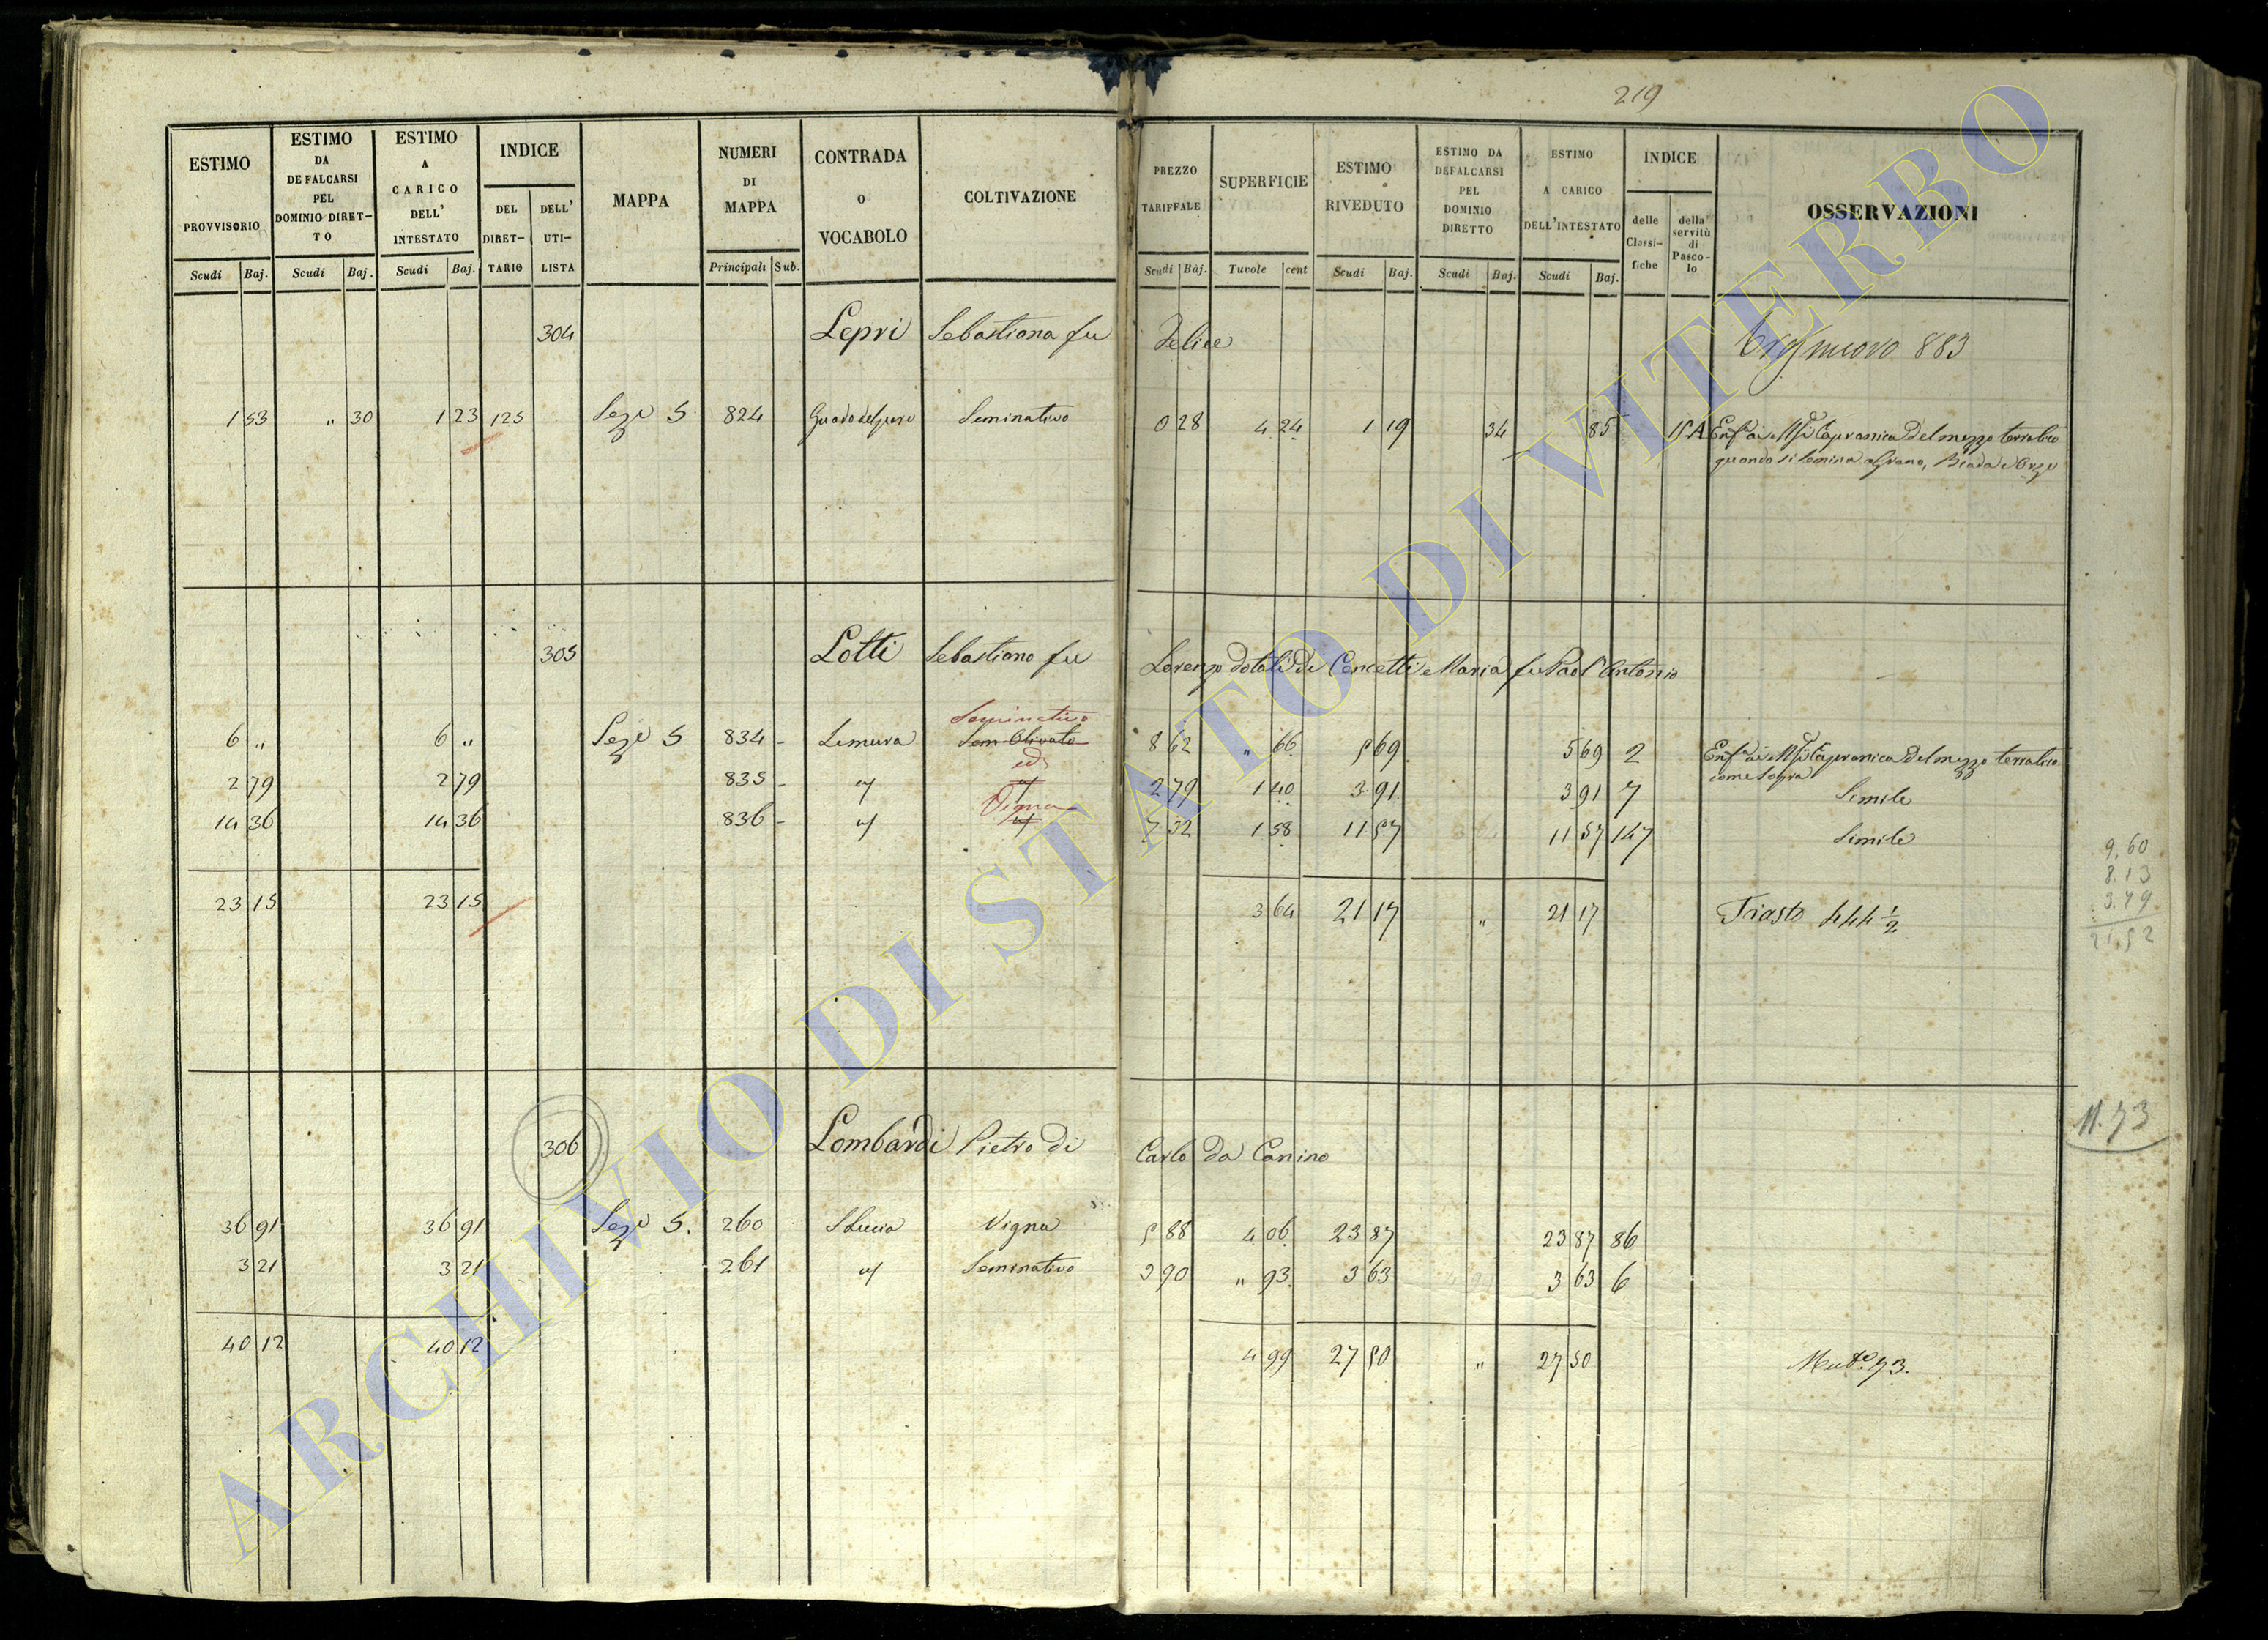 219
ESTIMO PROVVISORIO Scudi Baj.
ESTIMO DA DEFALCARSI PEL DOMINIO DIRETTO Scudi Baj.
ESTIMO A CARICO DELL' INTESTATO Scudi Baj.
INDICE DEL DIRETTARIO DELL' UTILISTA
MAPPA
NUMERI DI MAPPA Principali Sub.
CONTRADA o VOCABOLO
COLTIVAZIONE
PREZZO TARIFFALE Scudi Baj.
SUPERFICIE Tavole cent
ESTIMO RIVEDUTO Scudi Baj.
ESTIMO DA DEFALCARSI PEL DOMINIO DIRETTO Scudi Baj.
ESTIMO A CARICO DELL'INTESTATO Scudi Baj.
INDICE delle Classifiche della servitù di Pascolo
OSSERVAZIONI
304 Lepri Sebastiana fu Felice 883
1 53 " 30 1 23 125 Seze 5 824 Seminativo 0 28 4 24 1 19 34 85 15A Capranica del mezzo terratico
quando si semina Grano, Biada e Orzo
305 Lotti Sebastiano fu Lorenzo dotali di Concetti Maria fu Paol' Antonio
Seminativo
6 " 6 " Seze 5 834 - Limura Sem Olivato 8 62 " 66 5 69 5 69 2 Capranica del mezzo terratico
come sopra
2 79 2 79 835 - 2 79 1 40 3 91 3 91 7 Simile
Vigna
14 36 14 36 836 - 7 32 1 58 11 57 11 57 147 Simile
23 15 23 15 3 64 21 17 " 21 17 444 1/2
9.60
8.13
3.79
21.52
306 Lombardi Pietro di Carlo da Canino
N. 73
36 91 36 91 Seze 5. 260 S Lucia Vigna 5 88 4 06 23 87 23 87 86
3 21 3 21 261 Seminativo 3 90 " 93 3 63 3 63 6
40 12 40 12 4 99 27 50 " 27 50 73.
ARCHIVIO DI STATO DI VITERBO